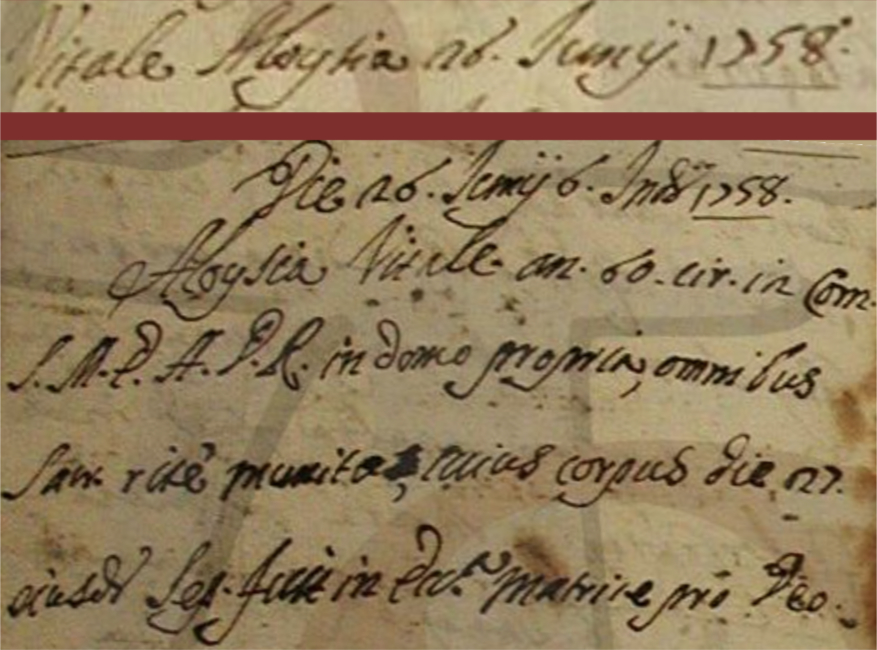 Vitale Aloysia 26. Junij 1758.
Die 26. Junij 6. Ind. 1758.
Aloysia Vitale an. 60. cir. in Com.
S. M. E. A. D. R. in domo propria, omnibus
Sacr. rite munita, cuius corpus die 27.
eiusd. Sep. fuit in Eccl.a matrice pro Deo.